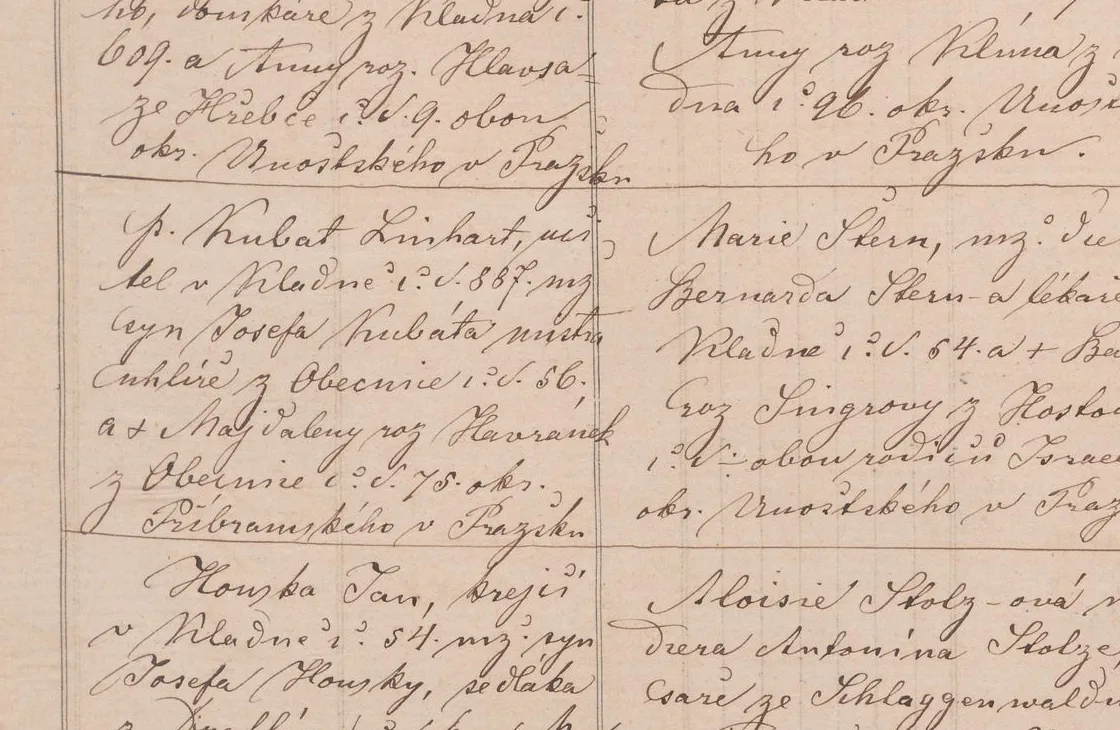 ho, domkáře z Kladna č.
609. a Anny roz. Hlavsa-
ze Hřebče č. d. 9. obou
okr. Unošťského v Pražsku
Anny roz Klíma z
dna č. 96. okr. Unošť
ho v Pražsku.
p. Kubat Linhart, uči-
tel v Kladně č. d. 887. mž
syn Josefa Kubáta mistra
uhlíře z Obecnice č. d. 56.
a + Majdaleny roz Havránek
z Obecnice č. d. 75. okr.
Příbramského v Pražsku
Marie Štern, mž. dce
Bernarda Štern-a lékaře
Kladně č. d. 54. a + Ba
roz Singrovy z Hostou
č. d - obou rodičů Israe
okr. Unošťského v Praž
Houska Jan, krejčí
v Kladně č. 54. mž. syn
Josefa Housky, sedláka
Aloisie Stolz-ová
dcera Antonína Stolze
saře ze Schlaggenwaldu